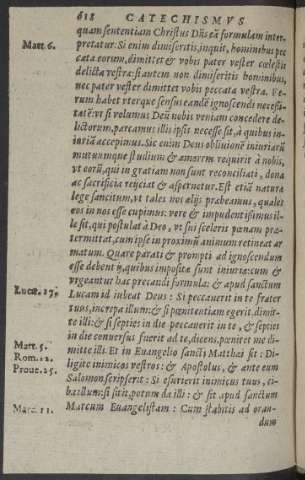 618 CATECHISMVS
quam sententiam Christus Dñs eã formulam inter-
Matt. 6. pretatur. Si enim dimiseritis, inquit, hominibus pec
cata eorum, dimittet & vobis pater vester cœlestis
delicta vestra: si autem non dimiseritis hominibus,
nec pater vester dimittet vobis peccata vestra. Ve-
rum habet vterque sensus eandē ignoscendi necessi-
tatē: vt si volumus Deū nobis veniam concedere de-
lictorum, parcamus illis ipsis necesse sit, à quibus in-
iuriā accepimus. Sic enim Deus obliuionē iniuriarū
mutuumque studium & amorem requirit à nobis,
vt eorū, qui in gratiam non sunt reconciliati, dona
ac sacrificia reijciat & aspernetur. Est etiā naturæ
lege sancitum, vt tales nos alijs præbeamus, quales
eos in nos esse cupimus: vere & impudentissimus il-
le sit, qui postulat à Deo, vt sui sceleris pœnam præ-
termittat, cum ipse in proximū animum retineat ar
matum. Quare parati & prompti ad ignoscendum
esse debent ij, quibus impositæ sunt iniuriæ: cum &
vrgeantur hac precandi formula: & apud sanctum
Lucæ. 17. Lucam id iubeat Deus: Si peccauerit in te frater
tuus, increpa illum: & si pœnitentiam egerit, dimit-
te illi: & si septies in die peccauerit in te, & septies
in die conuersus fuerit ad te, dicens, pœnitet me di-
Matt. 5. mitte illi. Et in Euangelio sancti Matthæi sit: Di-
Rom. 12. ligite inimicos vestros: & Apostolus, & ante eum
Prouc. 25. Salomon scripserit: Si esurierit inimicus tuus, ci-
ba illum: si sitit, potum da illi: & sit apud sanctum
Marc. 11. Marcum Euangelistam: Cum stabitis ad oran-
dum